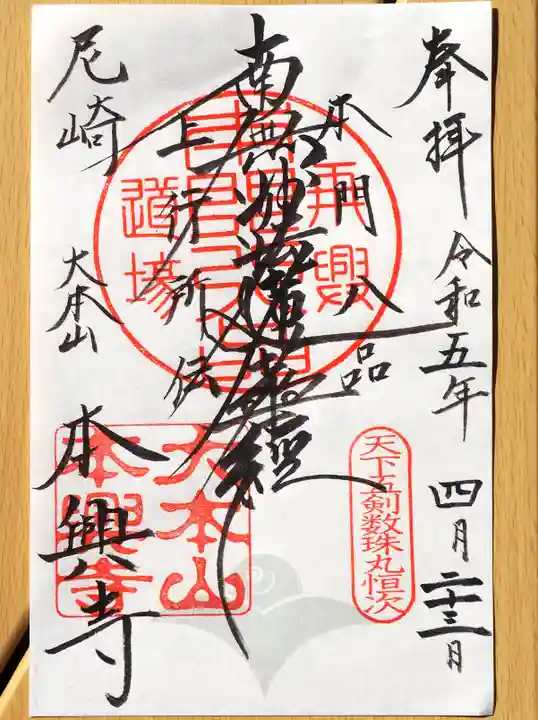 奉拝
令和五年 四月二十三日
本門八品
南無妙法蓮華経
上行所伝
尼崎
大本山
本興寺
道場
大本山
本興寺
天下五剣数珠丸恒次